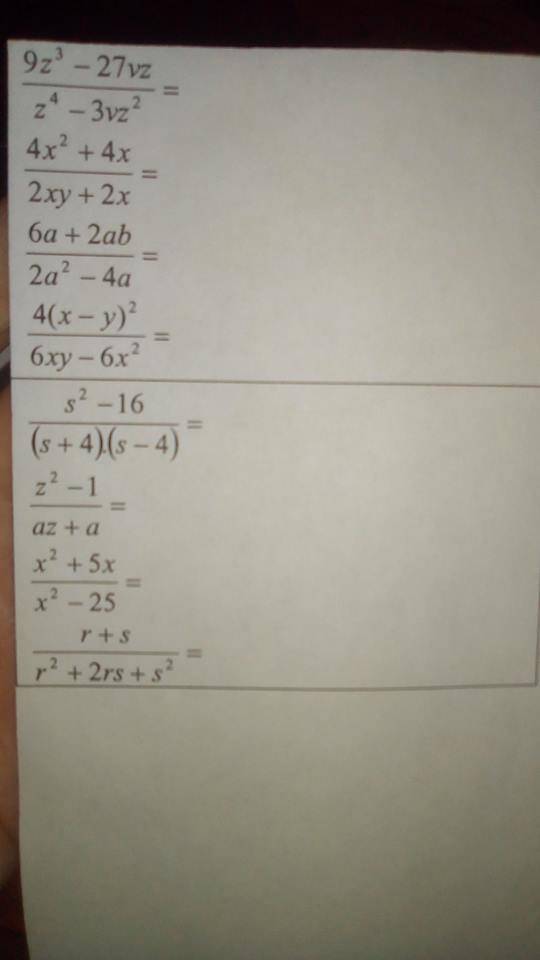 9z³ − 27vz
z⁴ − 3vz² =
4x² + 4x
2xy + 2x =
6a + 2ab
2a² − 4a =
4(x − y)²
6xy − 6x² =
s² − 16
(s + 4).(s − 4) =
z² − 1
az + a =
x² + 5x
x² − 25 =
r + s
r² + 2rs + s² =